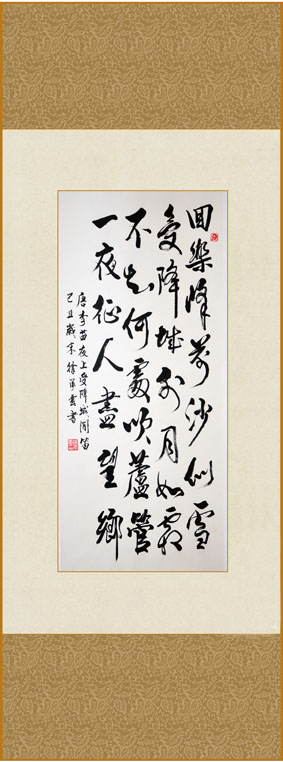 回樂峰前沙似雪
受降城外月如霜
不知何處吹蘆管
一夜征人盡望鄉
唐李益夜上受降城聞笛
己丑歲末徐雲書